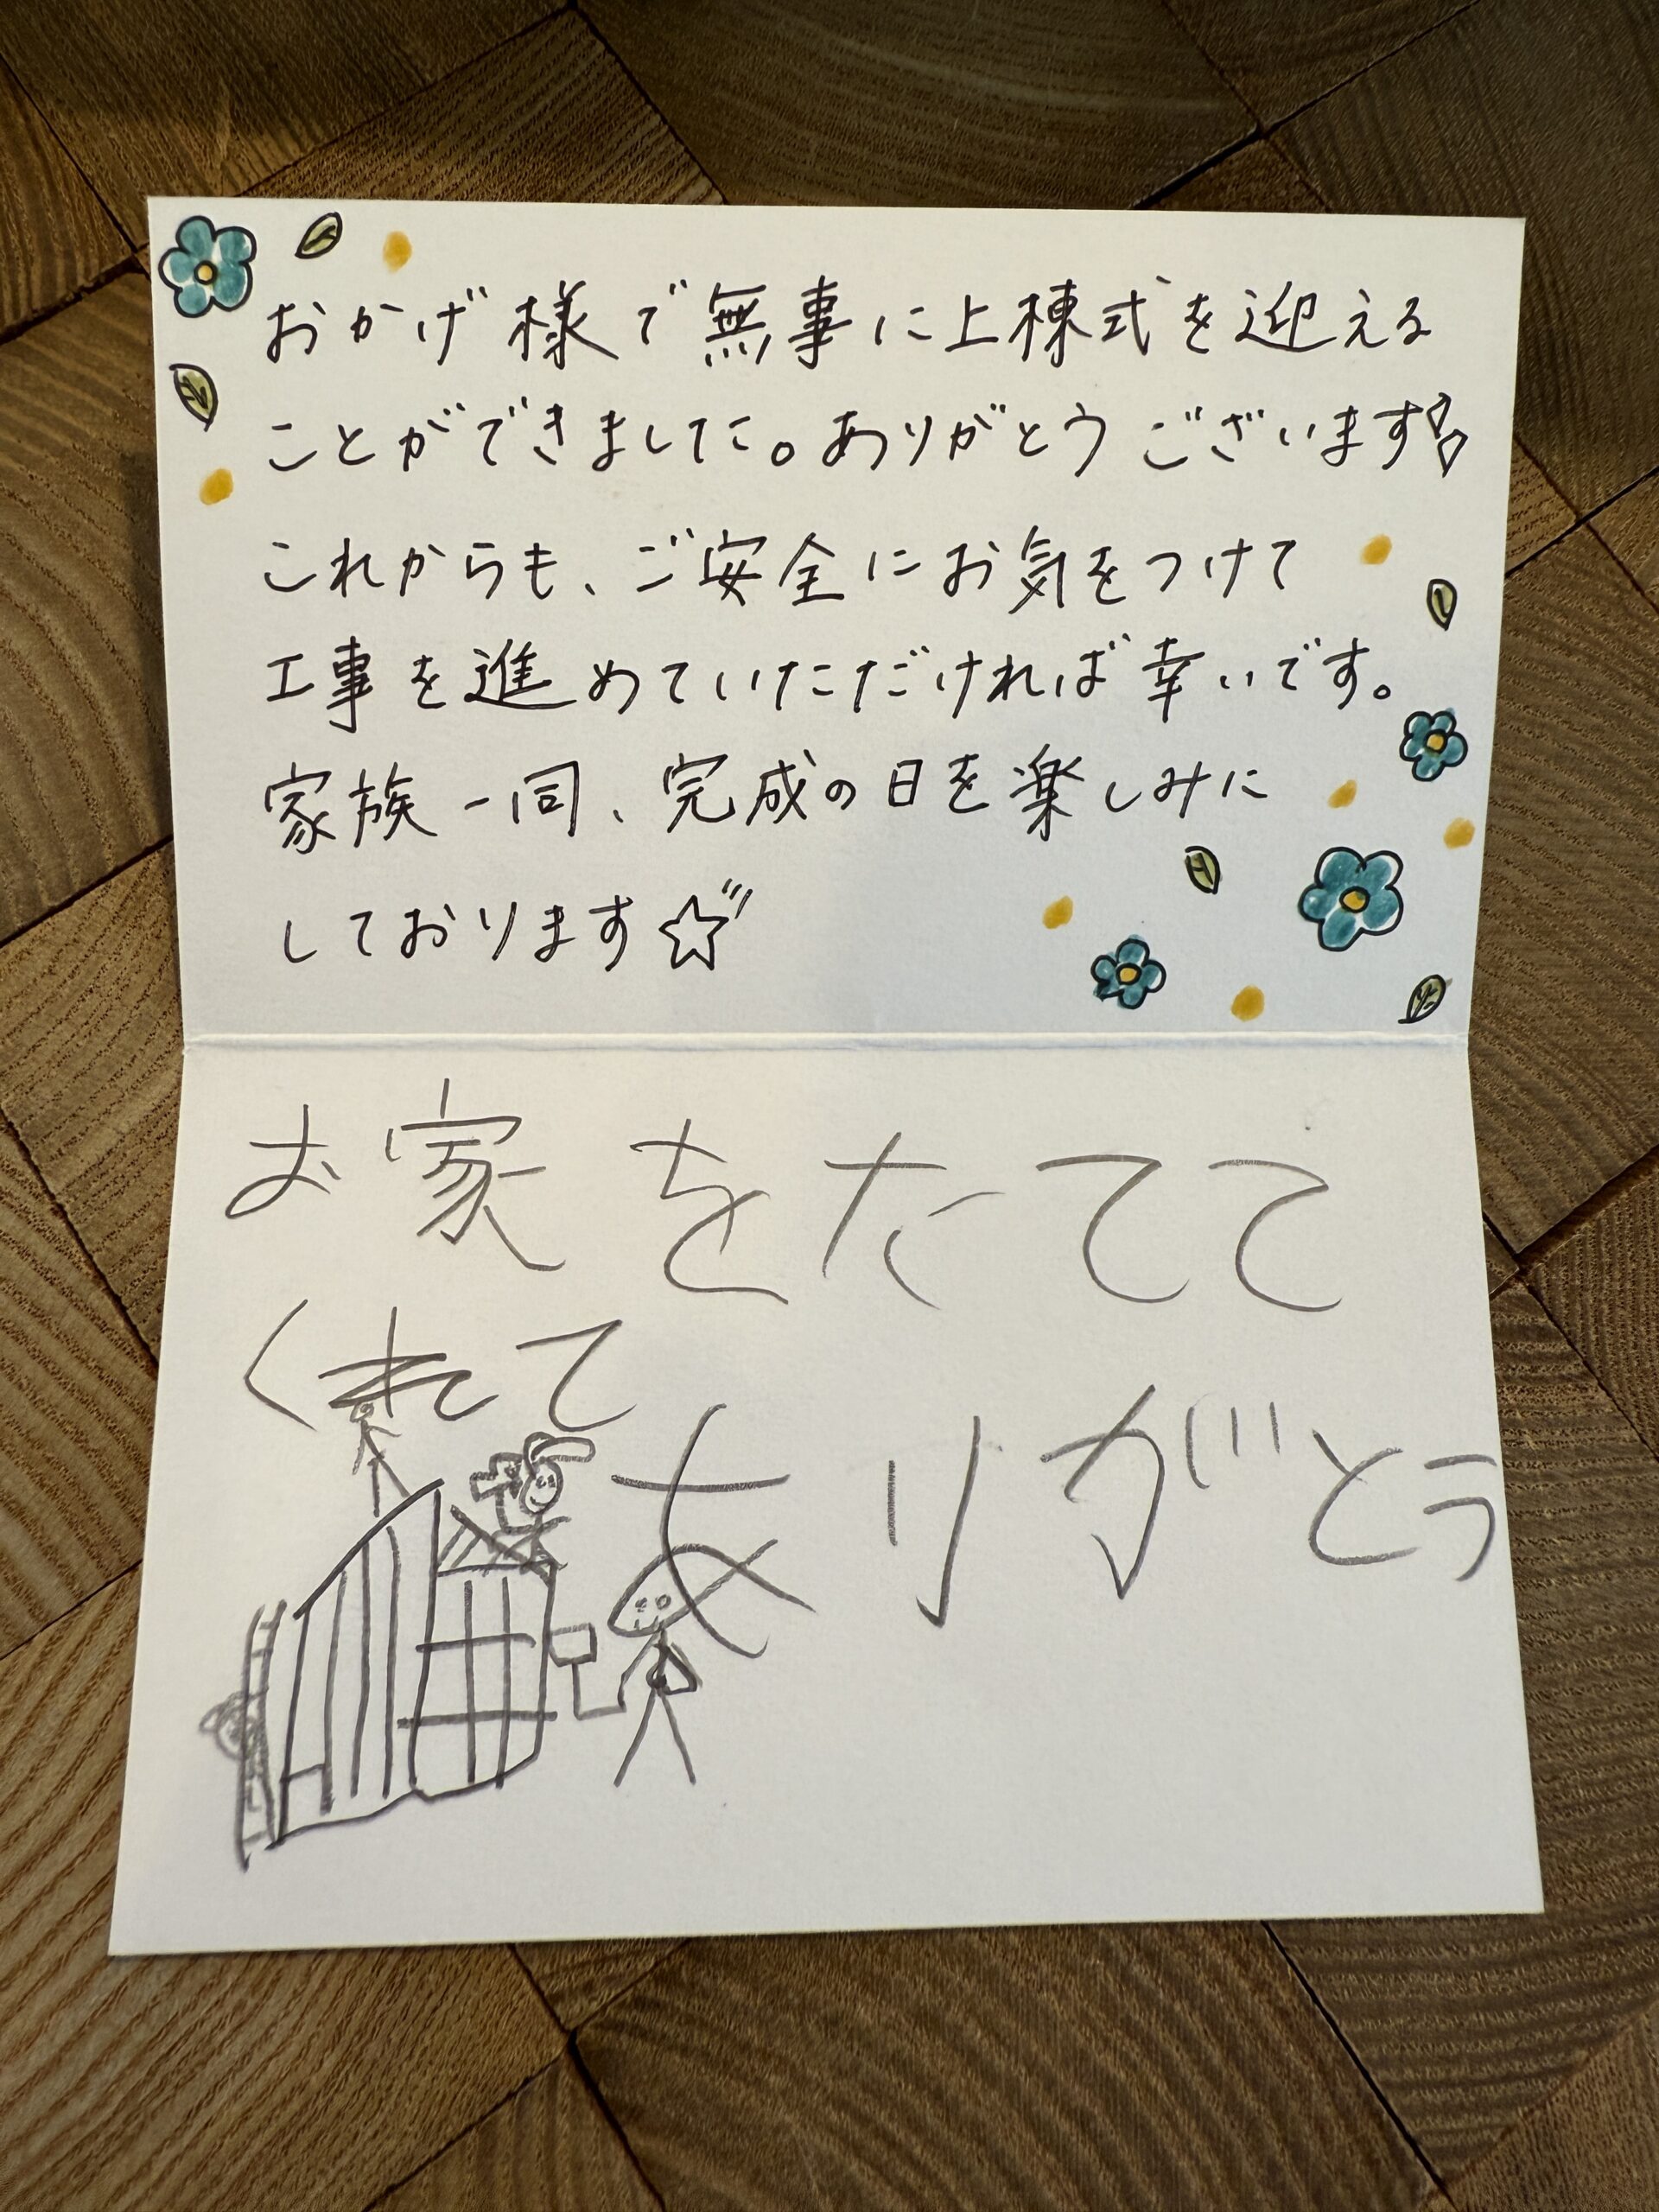 おかげ様で無事に上棟式を迎える
ことができました。ありがとうございます
これからも、ご安全にお気をつけて
工事を進めていただければ幸いです。
家族一同、完成の日を楽しみに
しております☆
お家をたてて
くれて
ありがとう